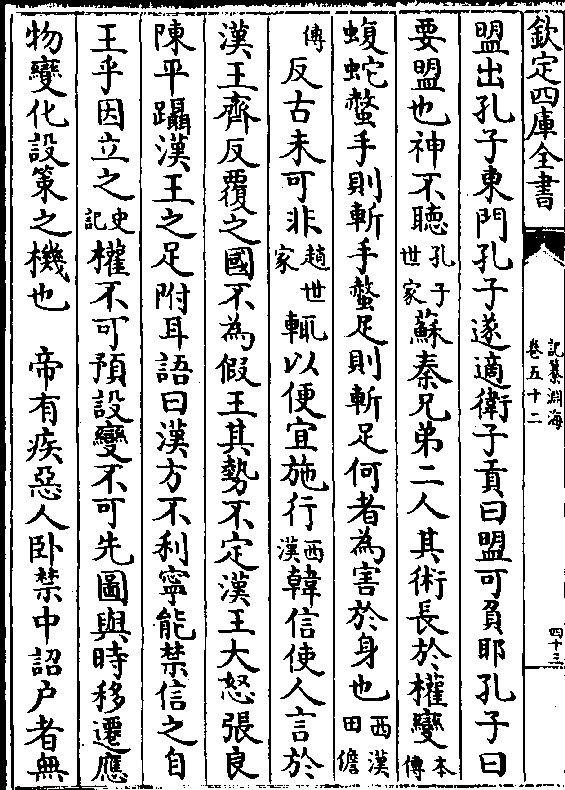 欽定四庫全書
記纂淵海
卷五十二
四十三
盟出孔子東門孔子遂適衛子貢曰盟可負耶孔子曰
要盟也神不聽孔子世家蘇秦兄弟二人其術長於權變本傳
蝮蛇螫手則斬手螫足則斬足何者為害於身也西漢田儋
傳反古未可非趙世家輒以便宜施行西漢韓信使人言於
漢王齊反覆之國不為假王其勢不定漢王大怒張良
陳平躡漢王之足附耳語曰漢方不利寧能禁信之自
王乎因立之史記權不可預設變不可先圖與時移遷應
物變化設策之機也 帝有疾惡人卧禁中詔户者無